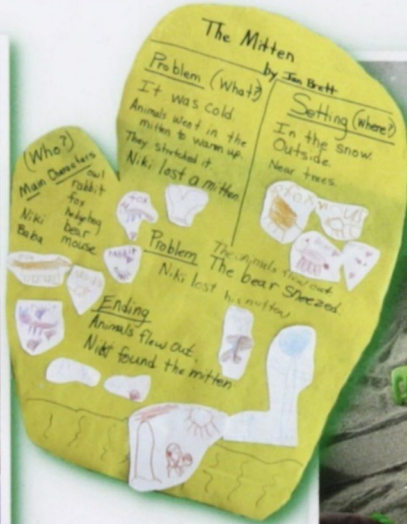 The Mitten
by Jan Brett
Problem (What?)
It was cold
Animals went in the
mitten to warm up.
They stretched it
Niki lost a mitten
Setting (Where?)
In the snow.
Outside
Near trees.
(Who?)
Main Characters
owl
rabbit
fox
hedgehog
bear
mouse
Niki
Baba
Problem
The animals flew out
The bear sneezed.
Niki lost his mitten
Ending
Animals flew out
Niki found the mitten